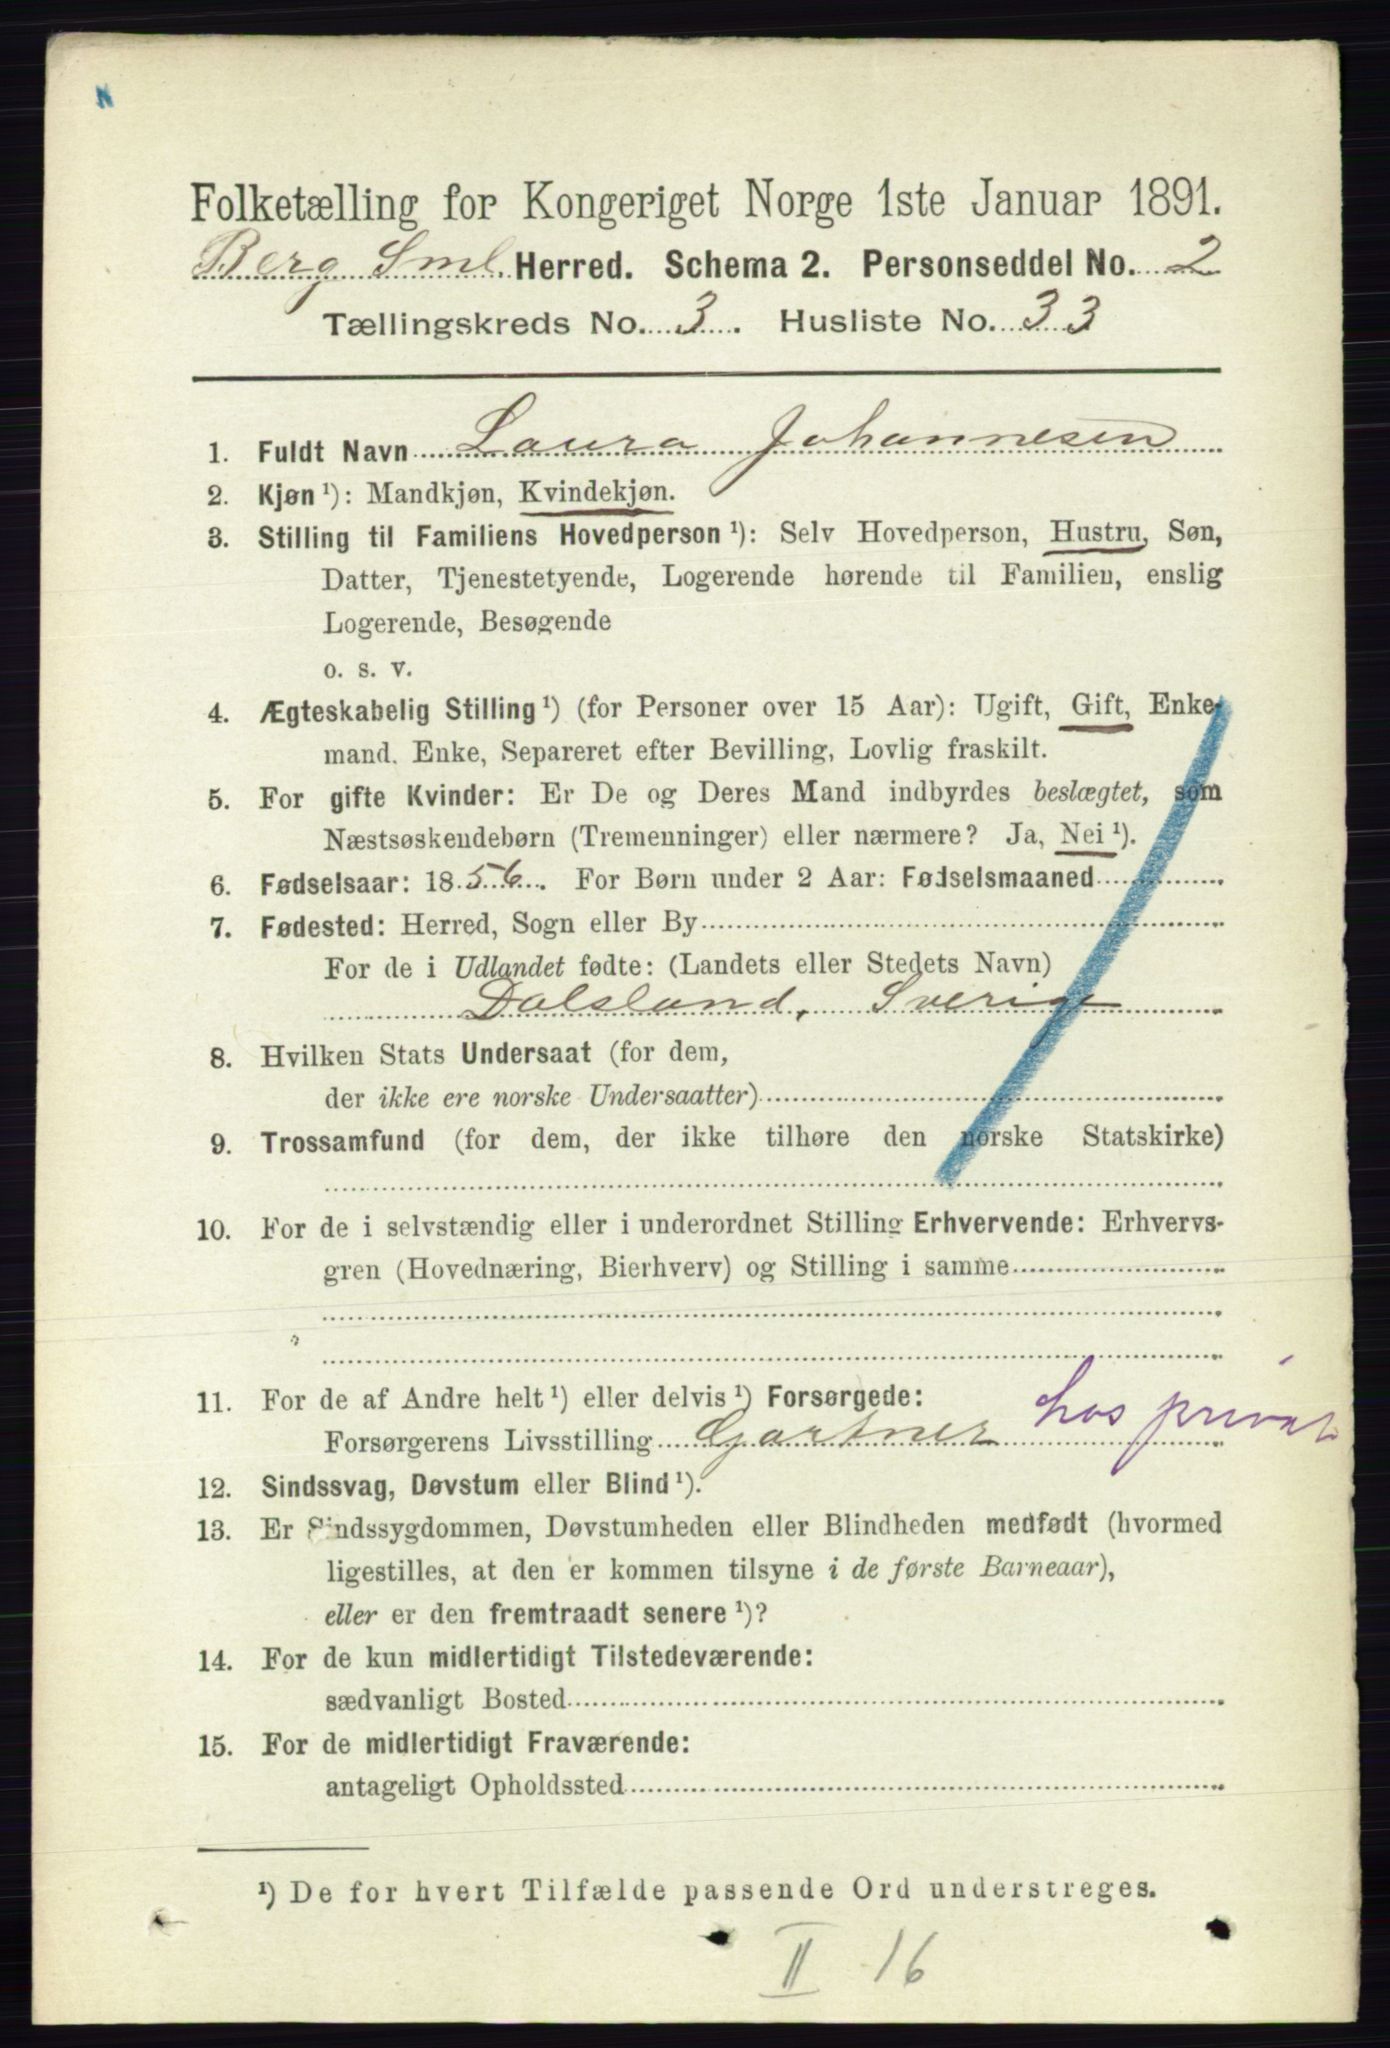 Folketælling for Kongeriget Norge 1ste Januar 1891.
Berg Sml. Herred. Schema 2. Personseddel No. 2
Tællingskreds No. 3. Husliste No. 33
1. Fuldt Navn Laura Johannesen
2. Kjøn ¹): Mandkjøn, Kvindekjøn.
3. Stilling til Familiens Hovedperson ¹): Selv Hovedperson, Hustru, Søn,
Datter, Tjenestetyende, Logerende hørende til Familien, enslig
Logerende, Besøgende
o. s. v.
4. Ægteskabelig Stilling ¹) (for Personer over 15 Aar): Ugift, Gift, Enke-
mand. Enke, Separeret efter Bevilling, Lovlig fraskilt.
5. For gifte Kvinder: Er De og Deres Mand indbyrdes beslægtet, som
Næstsøskendebørn (Tremenninger) eller nærmere? Ja, Nei ¹).
6. Fødselsaar: 1856. For Børn under 2 Aar: Fødselsmaaned
7. Fødested: Herred, Sogn eller By
For de i Udlandet fødte: (Landets eller Stedets Navn)
Dalsland, Sverige
8. Hvilken Stats Undersaat (for dem,
der ikke ere norske Undersaatter)
9. Trossamfund (for dem, der ikke tilhøre den norske Statskirke)
10. For de i selvstændig eller i underordnet Stilling Erhvervende: Erhvervs-
gren (Hovednæring, Bierhverv) og Stilling i samme
11. For de af Andre helt ¹) eller delvis ¹) Forsørgede:
Forsørgerens Livsstilling Gartner hos privat
12. Sindssvag, Døvstum eller Blind ¹).
13. Er Sindssygdommen, Døvstumheden eller Blindheden medfødt (hvormed
ligestilles, at den er kommen tilsyne i de første Barneaar),
eller er den fremtraadt senere ¹)?
14. For de kun midlertidigt Tilstedeværende:
sædvanligt Bosted
15. For de midlertidigt Fraværende:
antageligt Opholdssted
¹) De for hvert Tilfælde passende Ord understreges.
II 16